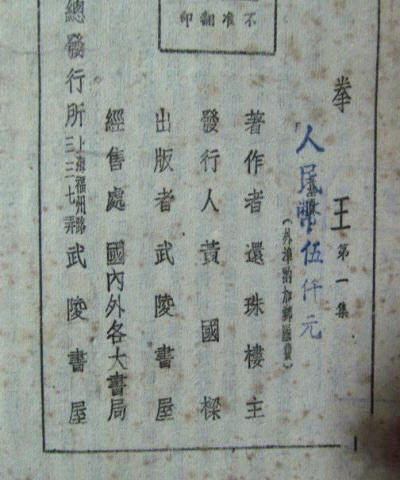 拳王 第一集
人民幣伍仟元
(外埠酌加郵匯費)
著作者 還珠樓主
發行人 黃國樑
出版者 武陵書屋
經售處 國內外各大書局
不准翻印
總發行所 上海福州路三三七弄 武陵書屋